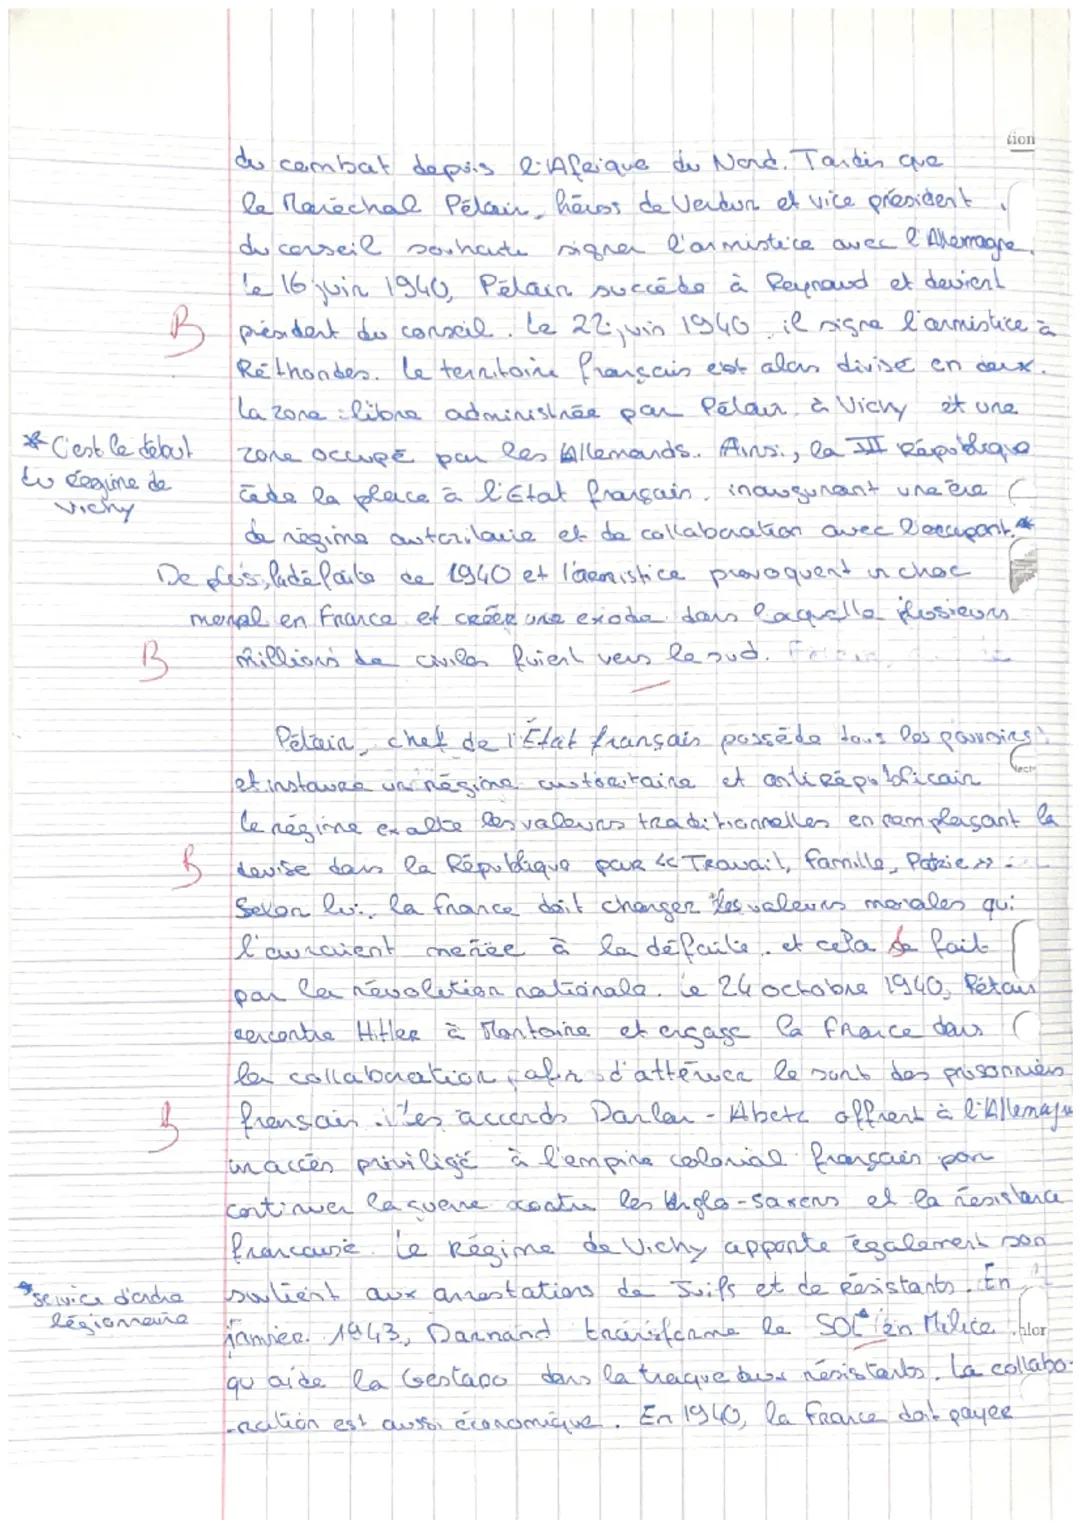 tion
du combat depuis l'Afrique du Nord. Tandis que
le Maréchal Pétain, héros de Verdun et vice président
du conseil souhaite signer l'armistice avec l'Allemagne.
Le 16 juin 1940, Pétain succède à Reynaud et devient
B
président du conseil. Le 22 juin 1940 il signe l'armistice à
Réthondes. Le territoire français est alors divisé en deux.
La zone libre administrée par Pétain à Vichy et une
* C'est le début
zone occupé par les Allemands. Ainsi, la III République
du régime de
cède la place à l'État français, inaugurant une ère
Vichy
de régime autoritaire et de collaboration avec l'occupant.*
De plus, la défaite de 1940 et l'armistice provoquent un choc
moral en France et créer une exode dans laquelle plusieurs
B
millions de civiles fuient vers le sud.
Pétain, chef de l'État français possède tous les pouvoirs
et instaure un régime autoritaire et antirépublicain
le régime exalte les valeurs traditionnelles en remplaçant la
B
devise dans la République par << Travail, Famille, Patrie >>.
Selon lui, la france doit changer les valeurs morales qui
l'auraient menée à la défaite et cela se fait
par la révolution nationale. Le 24 octobre 1940, Pétain
rencontre Hitler à Montoire et engage la France dans
la collaboration, afin d'atténuer le sort des prisonniers
B
français. Les accords Darlan - Abetz offrent à l'Allemagne
un accès priviligié à l'empire colonial français pour
continuer la guerre contre les Anglo-Saxons et la résistance
française. Le Régime de Vichy apporte également son
* service d'ordre
soutient aux arrestations de Juifs et de Résistants. En
légionnaire
janvier 1943, Darnand transforme le SOL* en Milice
qu aide la Gestapo dans la traque aux résistants. La collabo-
-ration est aussi économique. En 1940, la France doit payer